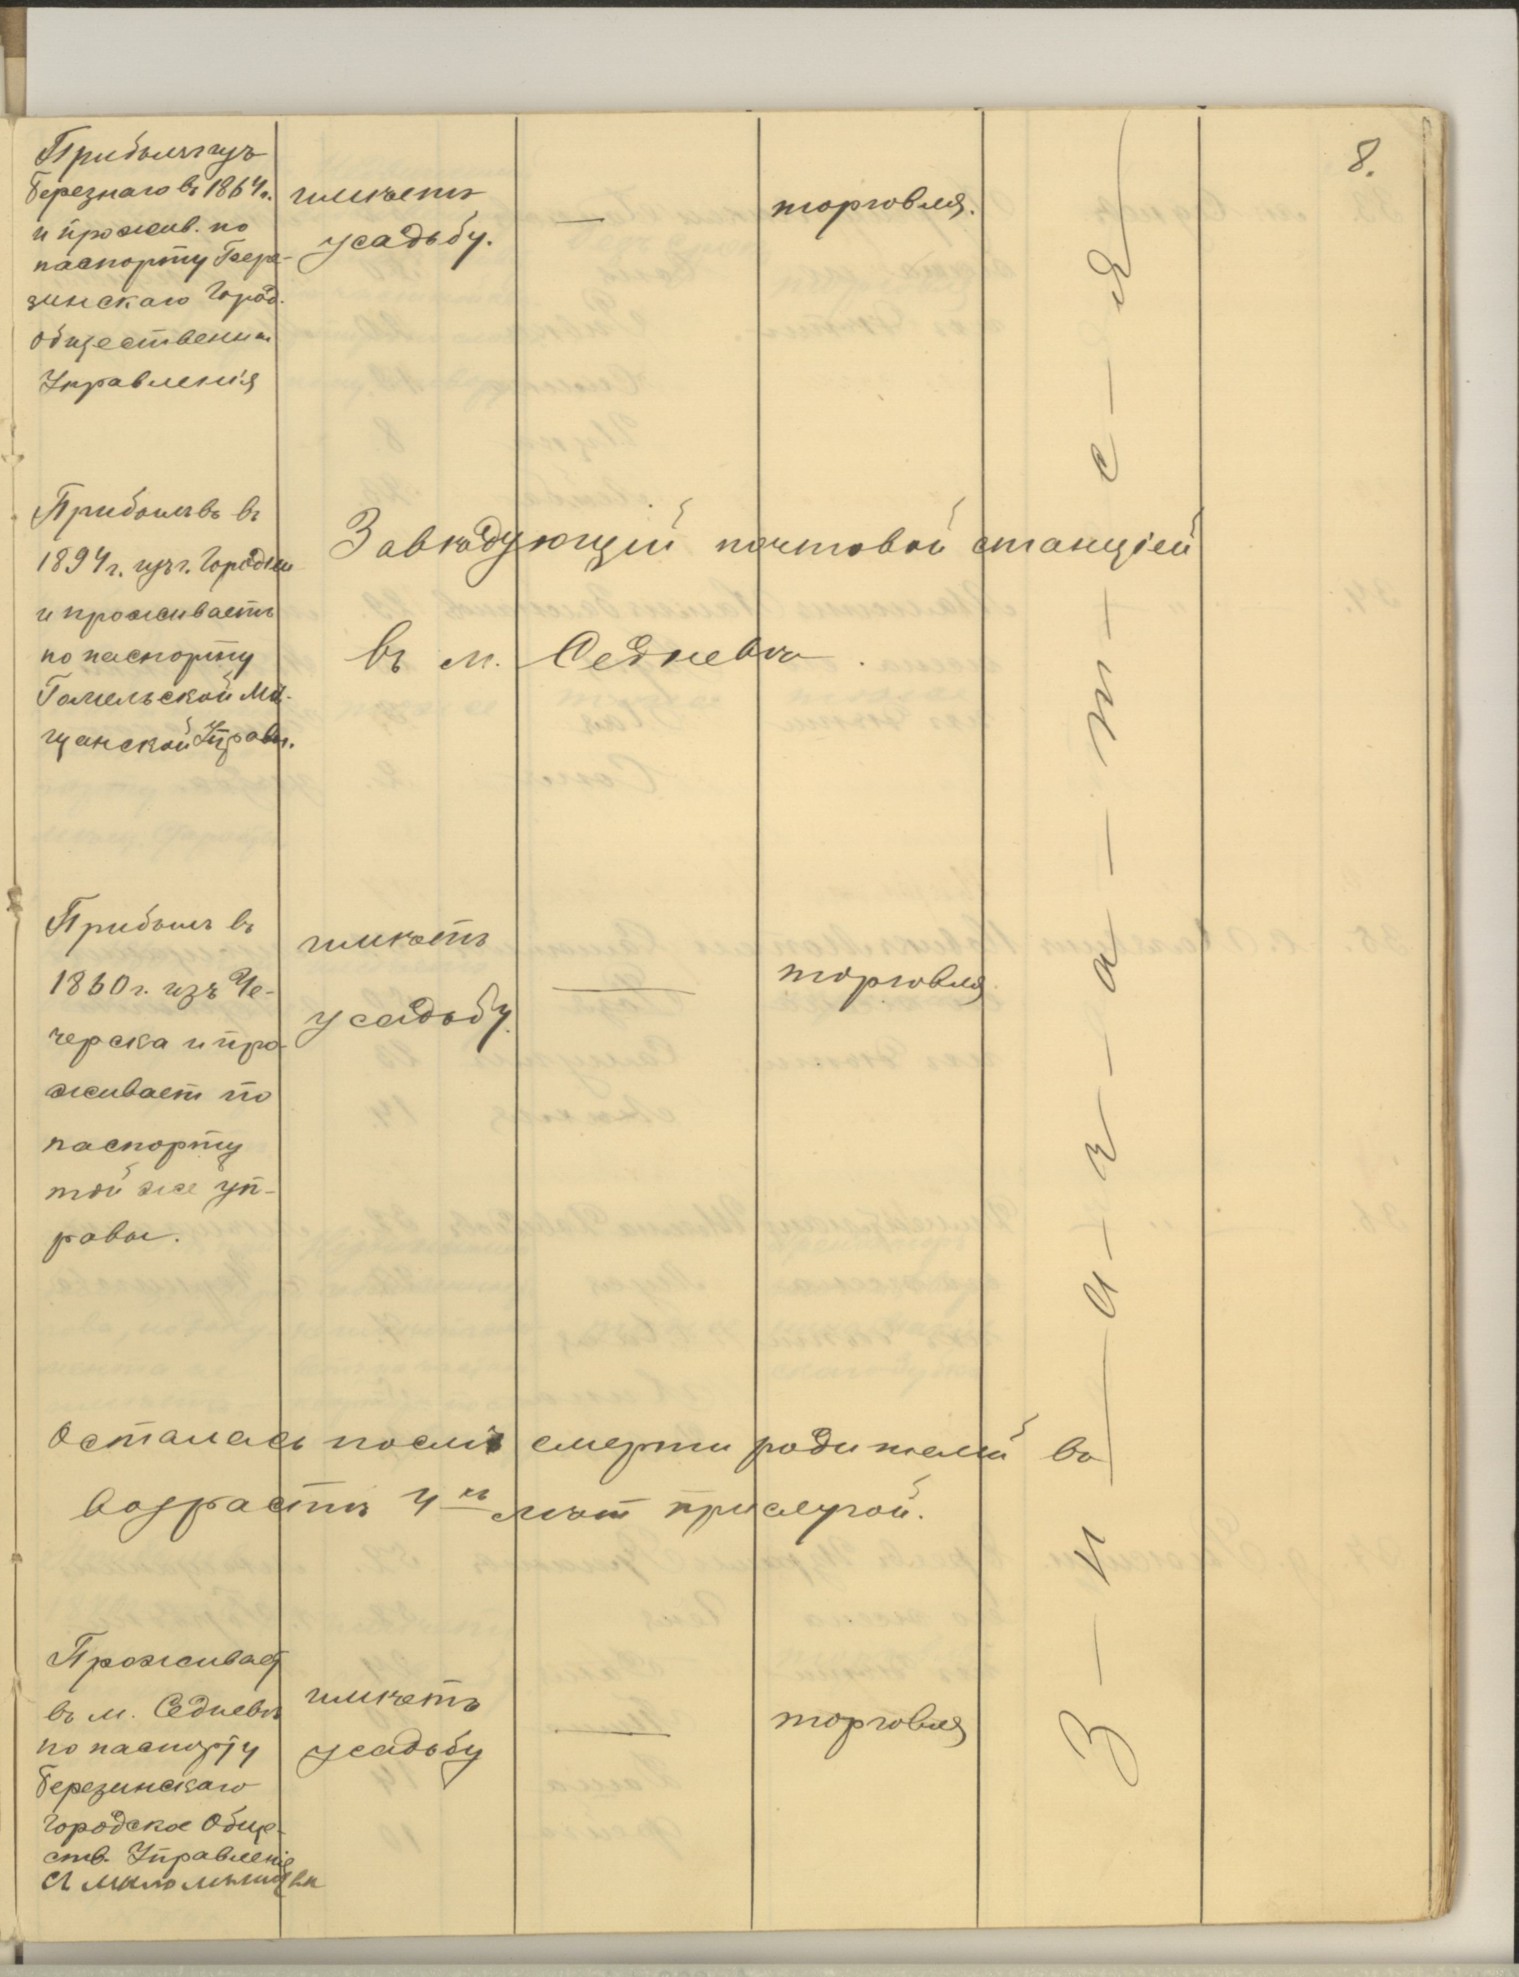 8.
Прибылъ изъ
Березнаго въ 1864г.
и прожив. по
паспорту Бере-
зинскаго Город.
Общественн
Управленія
имѣетъ
усадьбу.
—
торговля.
Прибылъ въ
1894 г. изъ г. Городни
и проживаетъ
по паспорту
Гомельской Мѣ-
щанской Управы.
Завѣдующій почтовой станціей
въ м. Седневѣ.
Прибылъ въ
1860 г. изъ Че-
черска и про-
живает по
паспорту
той же уп-
равы.
имѣетъ
усадьбу.
—
торговля
Осталась послѣ смерти родителей въ
возрастѣ 4хъ лѣт прислугой.
Проживает
въ м. Седневѣ
по паспорту
Березинскаго
Городское Обще-
ств. Управленіе
имѣетъ
усадьбу
—
торговля
З — н — а — ч — а — т — с — я